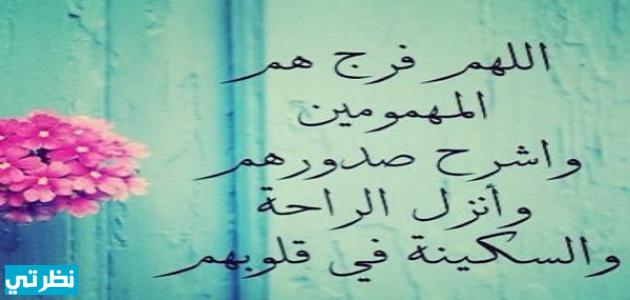 اللهم فرج هم
المهمومين
واشرح صدورهم
وأنزل الراحة
والسكينة في قلوبهم
نظرتي